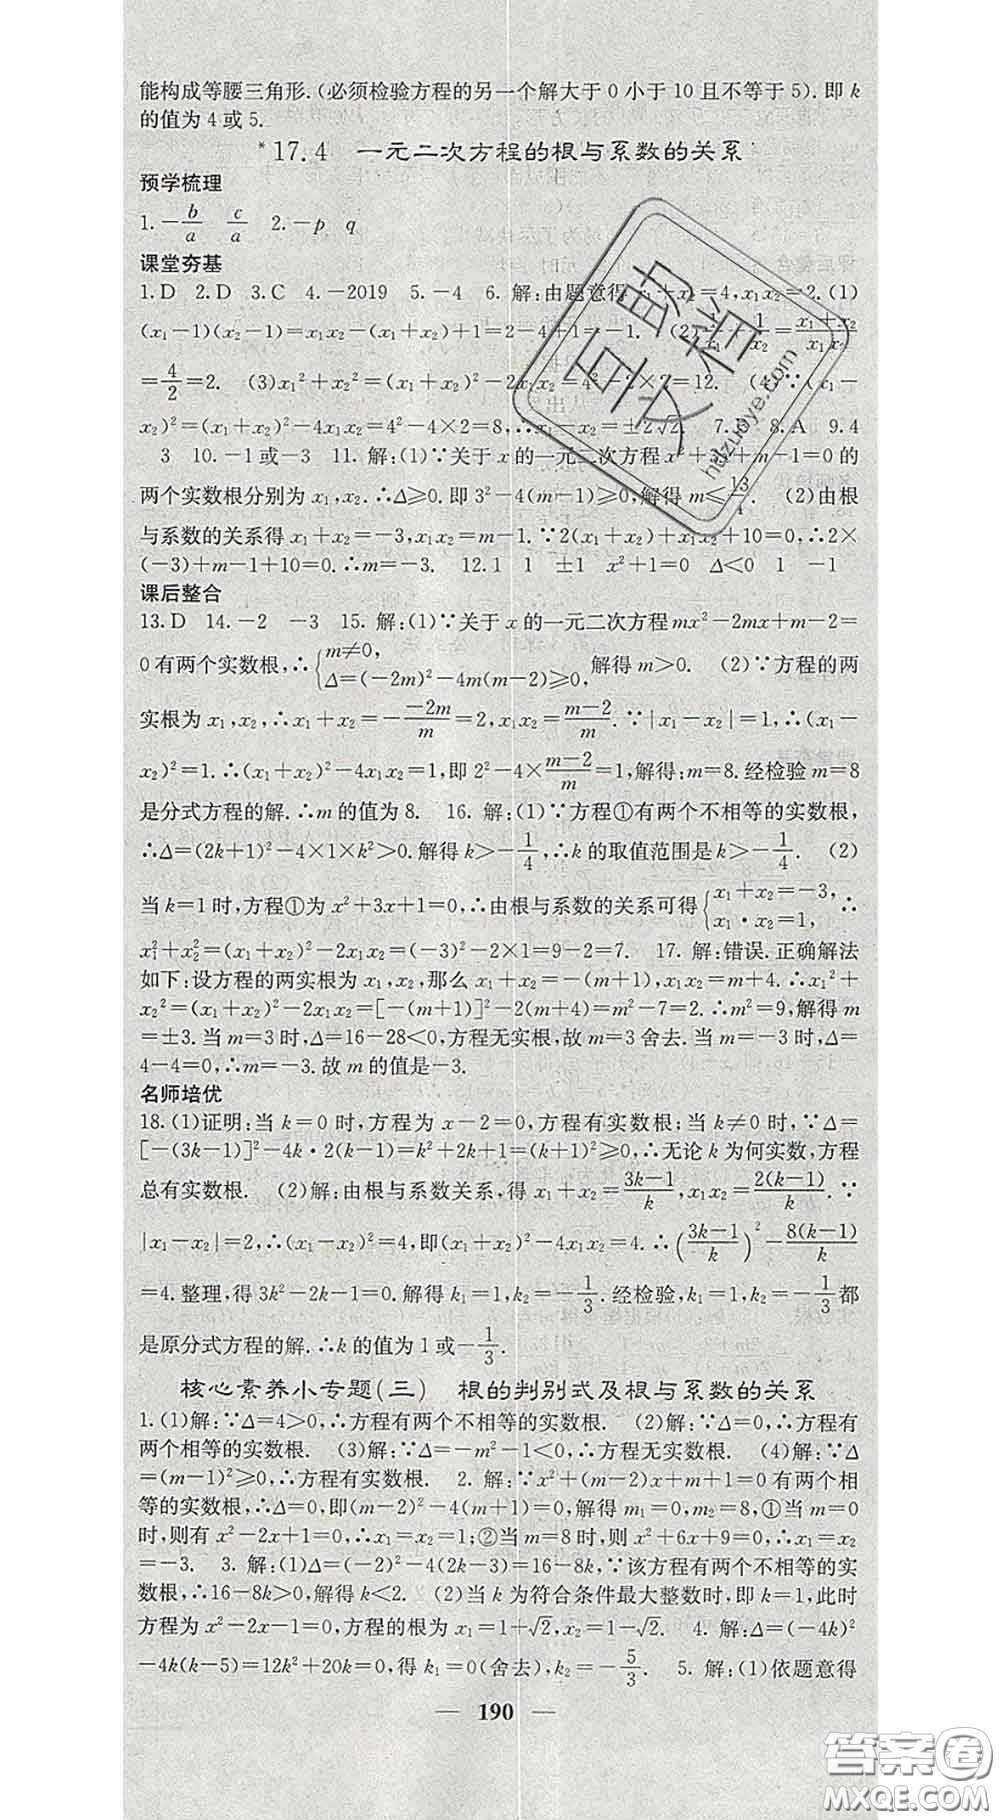 能构成等腰三角形.(必须检验方程的另一个解大于0小于10且不等于5).即k
的值为4或5.
*17.4 一元二次方程的根与系数的关系
预学梳理
1.-b/a c/a 2.-p q
课堂夯基
1.D 2.D 3.C 4.-2019 5.-4 6.解:由题意得x₁+x₂=4,x₁x₂=2.(1)
(x₁-1)(x₂-1)=x₁x₂-(x₁+x₂)+1=2-4+1=-1. (2)1/x₁+1/x₂=(x₁+x₂)/(x₁x₂)
=4/2=2. (3)x₁²+x₂²=(x₁+x₂)²-2x₁x₂=4²-2×2=12. (4)∵(x₁-
x₂)²=(x₁+x₂)²-4x₁x₂=4²-4×2=8,∴x₁-x₂=±2√2. 7. 8.A 9.4
3 10.-1或-3 11.解:(1)∵关于x的一元二次方程x²+3x+m-1=0的
两个实数根分别为x₁,x₂.∴Δ≥0.即3²-4(m-1)≥0,解得m≤13/4. (2)由根
与系数的关系得x₁+x₂=-3,x₁x₂=m-1.∵2(x₁+x₂)+x₁x₂+10=0,∴2×
(-3)+m-1+10=0.∴m=-3. 12.1 1 ±1 x²+1=0 Δ<0 1 -1
课后整合
13.D 14.-2 -3 15.解:(1)∵关于x的一元二次方程mx²-2mx+m-2=
0有两个实数根,∴{m≠0, Δ=(-2m)²-4m(m-2)≥0, 解得m>0. (2)∵方程的两
实根为x₁,x₂,∴x₁+x₂=-(-2m)/m=2,x₁x₂=(m-2)/m.∵|x₁-x₂|=1,∴(x₁-
x₂)²=1.∴(x₁+x₂)²-4x₁x₂=1,即2²-4×(m-2)/m=1,解得:m=8.经检验m=8
是分式方程的解.∴m的值为8. 16.解:(1)∵方程①有两个不相等的实数根,
∴Δ=(2k+1)²-4×1×k²>0.解得k>-1/4,∴k的取值范围是k>-1/4. (2)
当k=1时,方程①为x²+3x+1=0,∴由根与系数的关系可得{x₁+x₂=-3, x₁·x₂=1, ∴
x₁²+x₂²=(x₁+x₂)²-2x₁x₂=(-3)²-2×1=9-2=7. 17.解:错误.正确解法
如下:设方程的两实根为x₁,x₂,那么x₁+x₂=-(m+1),x₁x₂=m+4.∴x₁²+
x₂²=(x₁+x₂)²-2x₁x₂=[-(m+1)]²-2(m+4)=m²-7=2.∴m²=9,解得m
=±3.当m=3时,Δ=16-28<0,方程无实根,故m=3舍去.当m=-3时,Δ=
4-4=0,∴m=-3.故m的值是-3.
名师培优
18.(1)证明:当k=0时,方程为x-2=0,方程有实数根;当k≠0时,∵Δ=
[-(3k-1)]²-4k·2(k-1)=k²+2k+1=(k+1)²≥0,∴无论k为何实数,方程
总有实数根. (2)解:由根与系数关系,得x₁+x₂=(3k-1)/k,x₁x₂=2(k-1)/k.∵
|x₁-x₂|=2,∴(x₁-x₂)²=4,即(x₁+x₂)²-4x₁x₂=4.∴((3k-1)/k)²-8(k-1)/k
=4.整理,得3k²-2k-1=0.解得k₁=1,k₂=-1/3.经检验,k₁=1,k₂=-1/3都
是原分式方程的解.∴k的值为1或-1/3.
核心素养小专题(三) 根的判别式及根与系数的关系
1.(1)解:∵Δ=4>0,∴方程有两个不相等的实数根. (2)解:∵Δ=0,∴方程有
两个相等的实数根. (3)解:∵Δ=-m²-1<0,∴方程无实数根. (4)解:∵Δ
=(m-1)²≥0,∴方程有实数根. 2.解:∵x²+(m-2)x+m+1=0有两个相
等的实数根,∴Δ=0,即(m-2)²-4(m+1)=0,解得m₁=0,m₂=8,①当m=0
时,则有x²-2x+1=0,∴x₁=x₂=1;②当m=8时,则x²+6x+9=0,∴x₁=x₂
=-3. 3.解:(1)Δ=(-2)²-4(2k-3)=16-8k,∵该方程有两个不相等的实
数根,∴16-8k>0,解得k<2. (2)当k为符合条件最大整数时,即k=1,此时
方程为x²-2x-1=0,方程的根为x₁=1+√2,x₂=1-√2. 4.解:Δ=(-4k)²
-4k(k-5)=12k²+20k=0,得k₁=0(舍去),k₂=-5/3. 5.解:(1)依题意得
— 190 —
互助
文档
huizuoye.com
答案圈
MXQE.COM